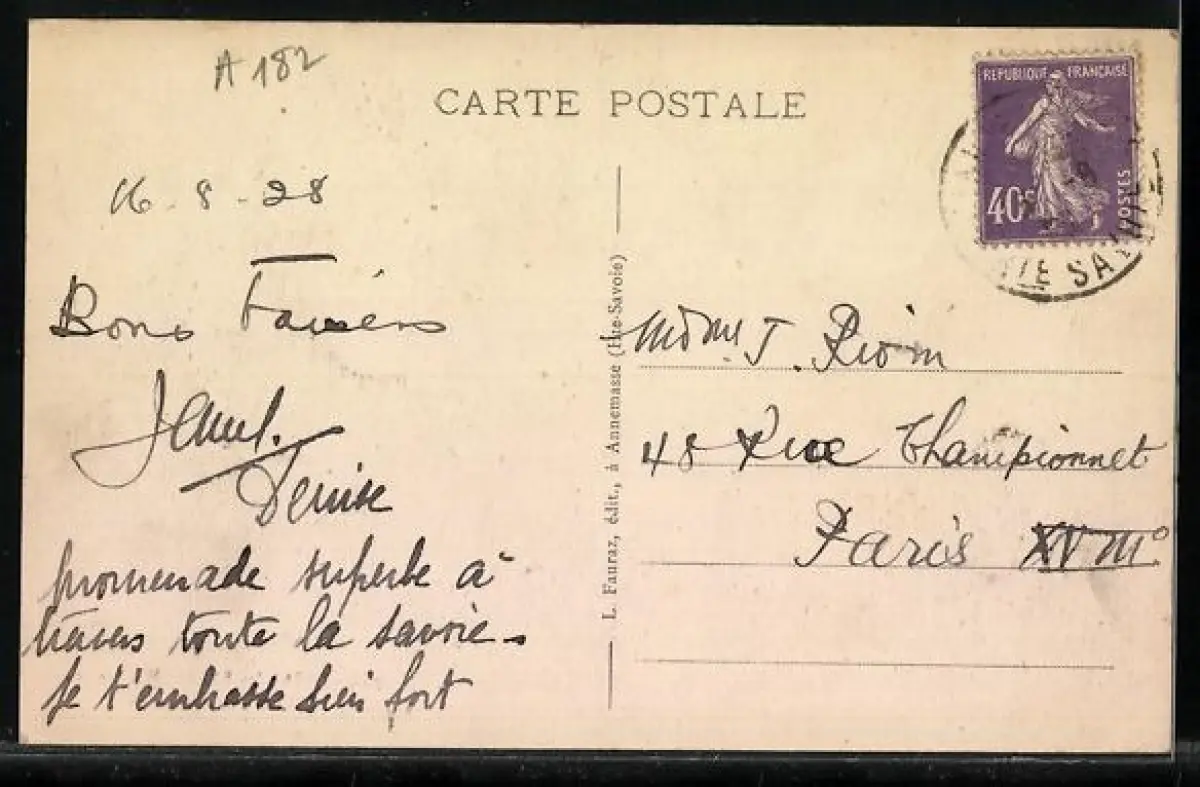 A 182
CARTE POSTALE
REPUBLIQUE FRANÇAISE
40c
POSTES
TE SAV
16-8-28
Bons
Denise
promenade superbe à
travers toute la savoie -
Je t'embrasse bien fort
L. Fauraz, édit., à Annemasse (Hte-Savoie)
T. Riom
48 Rue Championnet
Paris XVIII°